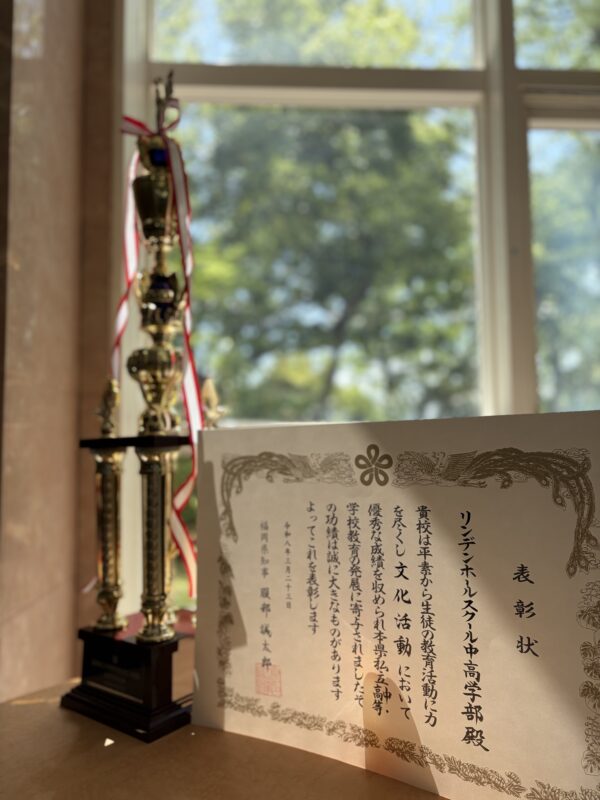 表彰状
リンデンホールスクール中高学部 殿
貴校は平素から生徒の教育活動に力
を尽くし 文化活動 において
優秀な成績を収められ本県私立中・高等
学校教育の発展に寄与されましたそ
の功績は誠に大きなものがあります
よってこれを表彰します
令和八年三月二十三日
福岡県知事 服部誠太郎